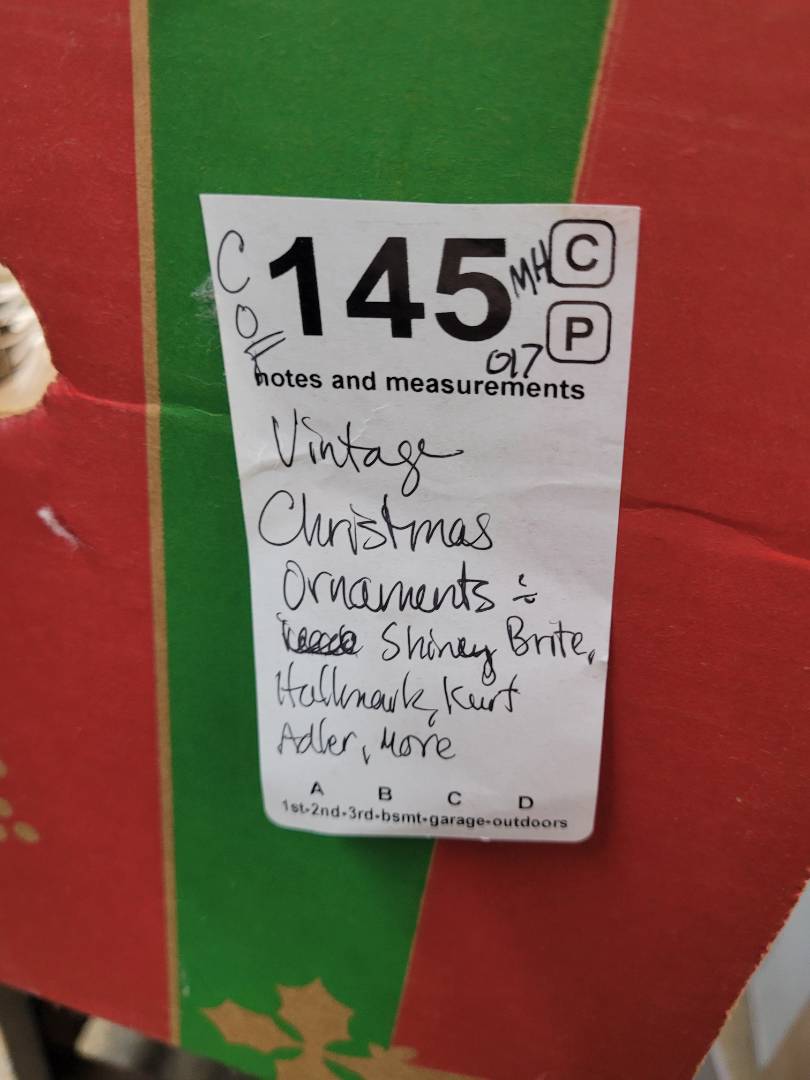 C 145 MH C
Off P
017
notes and measurements
Vintage
Christmas
Ornaments ÷
Shiney Brite,
Hallmark, Kurt
Adler, More
A B C D
1st-2nd-3rd-bsmt-garage-outdoors